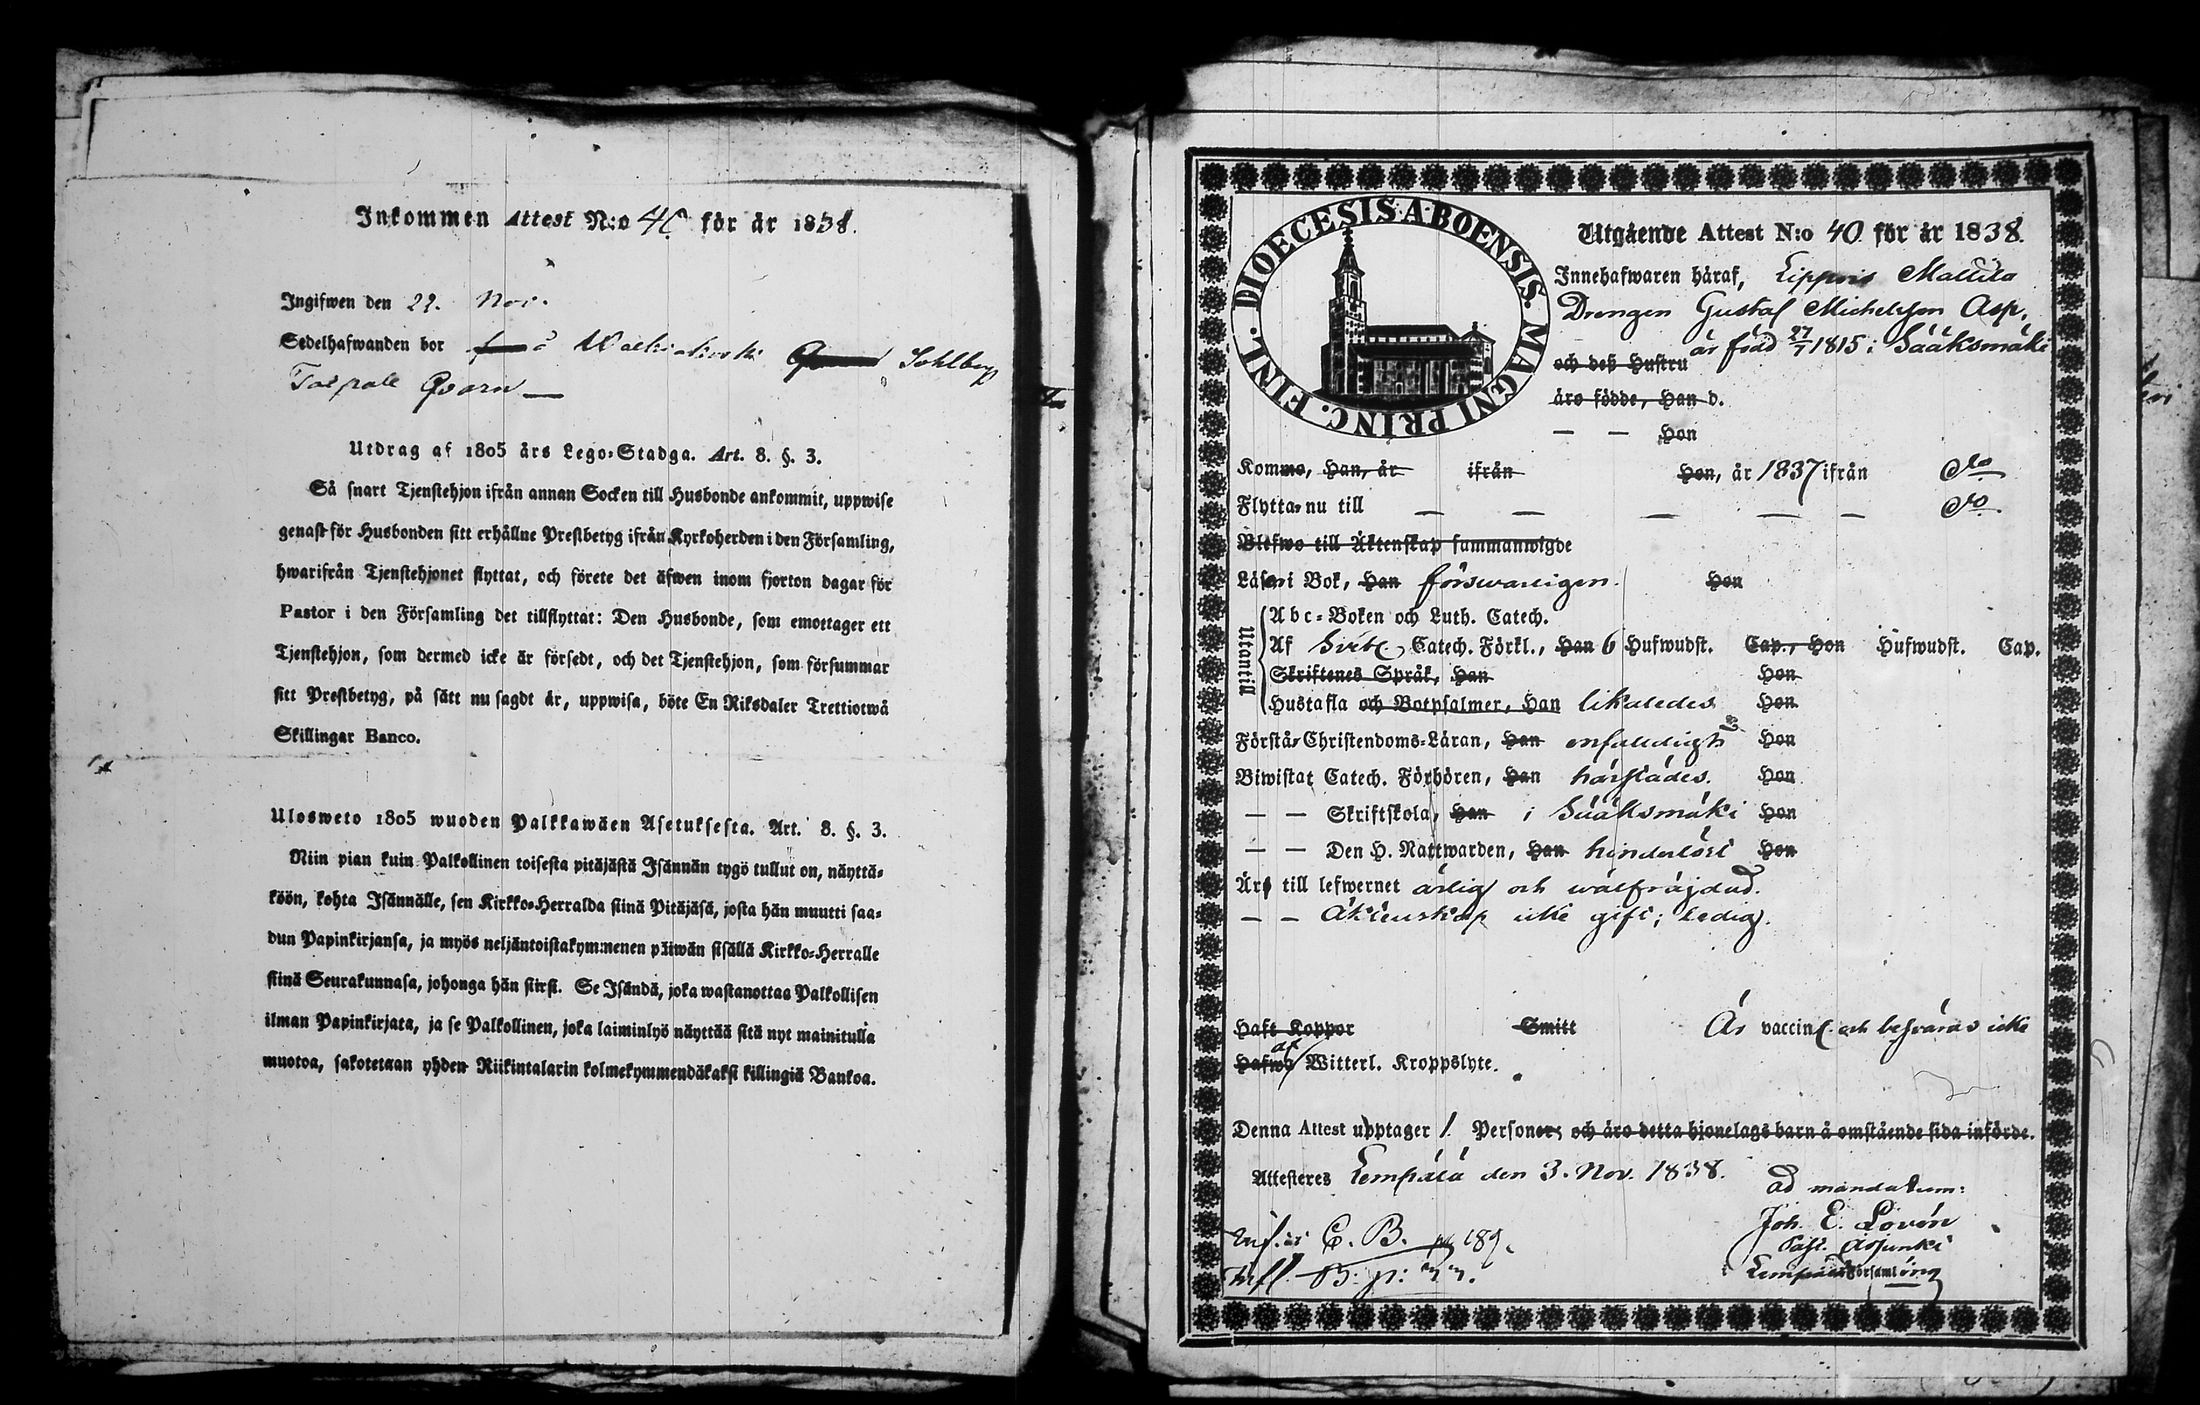 Inkommen Attest N:o 40 för år 1838.
Ingifwen den 22. Nov.
Sedelhafwanden bor å Sohlberg
Qvarn
Utdrag af 1805 års Lego-Stadga. Art. 8. §. 3.
Så snart Tjenstehjon ifrån annan Socken till Husbonde ankommit, uppwise
genast för Husbonden sitt erhållne Prestbetyg ifrån Kyrkoherden i den Församling,
hwarifrån Tjenstehjonet flyttat, och förete det äfwen inom fjorton dagar för
Pastor i den Församling det tillflyttat: Den Husbonde, som emottager ett
Tjenstehjon, som dermed icke är försedt, och det Tjenstehjon, som försummar
sitt Prestbetyg, på sätt nu sagdt är, uppwisa, böte En Riksdaler Trettiotwå
Skillingar Banco.
Ulosweto 1805 wuoden Palkkawäen Asetuksesta. Art. 8. §. 3.
Niin pian kuin Palkollinen toisesta pitäjästä Isännän tygö tullut on, näyttä-
köön, kohta Isännälle, sen Kirkko-Herralda siinä Pitäjäsä, josta hän muutti saa-
dun Papinkirjansa, ja myös neljäntoistakymmenen päiwän sisällä Kirkko-Herralle
siinä Seurakunnasa, johonga hän siirsi. Se Isändä, joka wastanottaa Palkollisen
ilman Papinkirjata, ja se Palkollinen, joka laiminlyö näyttää sitä nyt mainitulla
muotoa, sakotetaan yhden Riikintalarin kolmekymmendäkaksi killingiä Bankoa.
DIOECESIS ABOENSIS. MAGNI PRINC. FINL.
Utgående Attest N:o 40 för år 1838.
Innehafwaren häraf, Lippois Mattila
Drengen Gustaf Michelsson Asp,
är född 27/7 1815 i Sääksmäki
och deß Hustru
äro födde, Han d.
— — Hon
Komme, Han, år ifrån Hon, år 1837 ifrån
Flytta nu till — — — — —
Blefwo till Äktenskap sammanwigde
Läser i Bok, Han försvarligen. Hon
Utantill
Abc-Boken och Luth. Catech.
Af Svib. Catech. Förkl., Han 6 Hufwudst. Cap., Hon Hufwudst. Cap.
Skriftenes Språk, Han Hon
Hustafla och Botpsalmer, Han likaledes Hon
Förstår Christendoms-Läran, Han enfaldigt Hon
Biwistat Catech. Förhören, Han härstädes. Hon
— — Skriftskola, Han i Sääksmäki Hon
— — Den H. Nattwarden, Han hinderlöst Hon
Äro till lefwernet ärlig och wälfräjdad.
— — Äktenskap icke gift; ledig.
Haft Koppor Smitt Är vaccin. och besväras icke
Hafwa af Witterl. Kroppslyte.
Denna Attest upptager 1 Personer, och äro detta hjonelags barn å omstående sida införde.
Attesteres Lempälä den 3. Nov. 1838.
ad mandatum:
Joh. E. Lovén
Past. Adjunkt
i Lempälä Församling
C. B. 189.
B. p: 77.